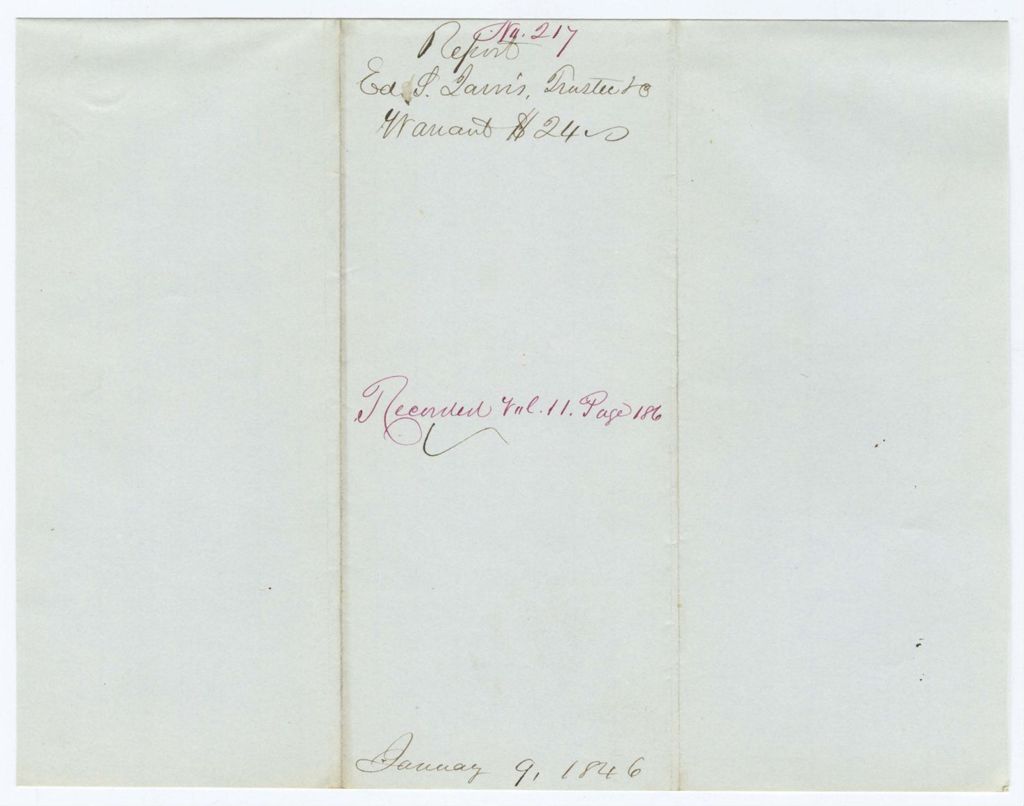 No. 217
Report
Ed. S. Jarvis, Trustee &c
Warrant $24
Recorded Vol. 11. Page 186
January 9, 1846